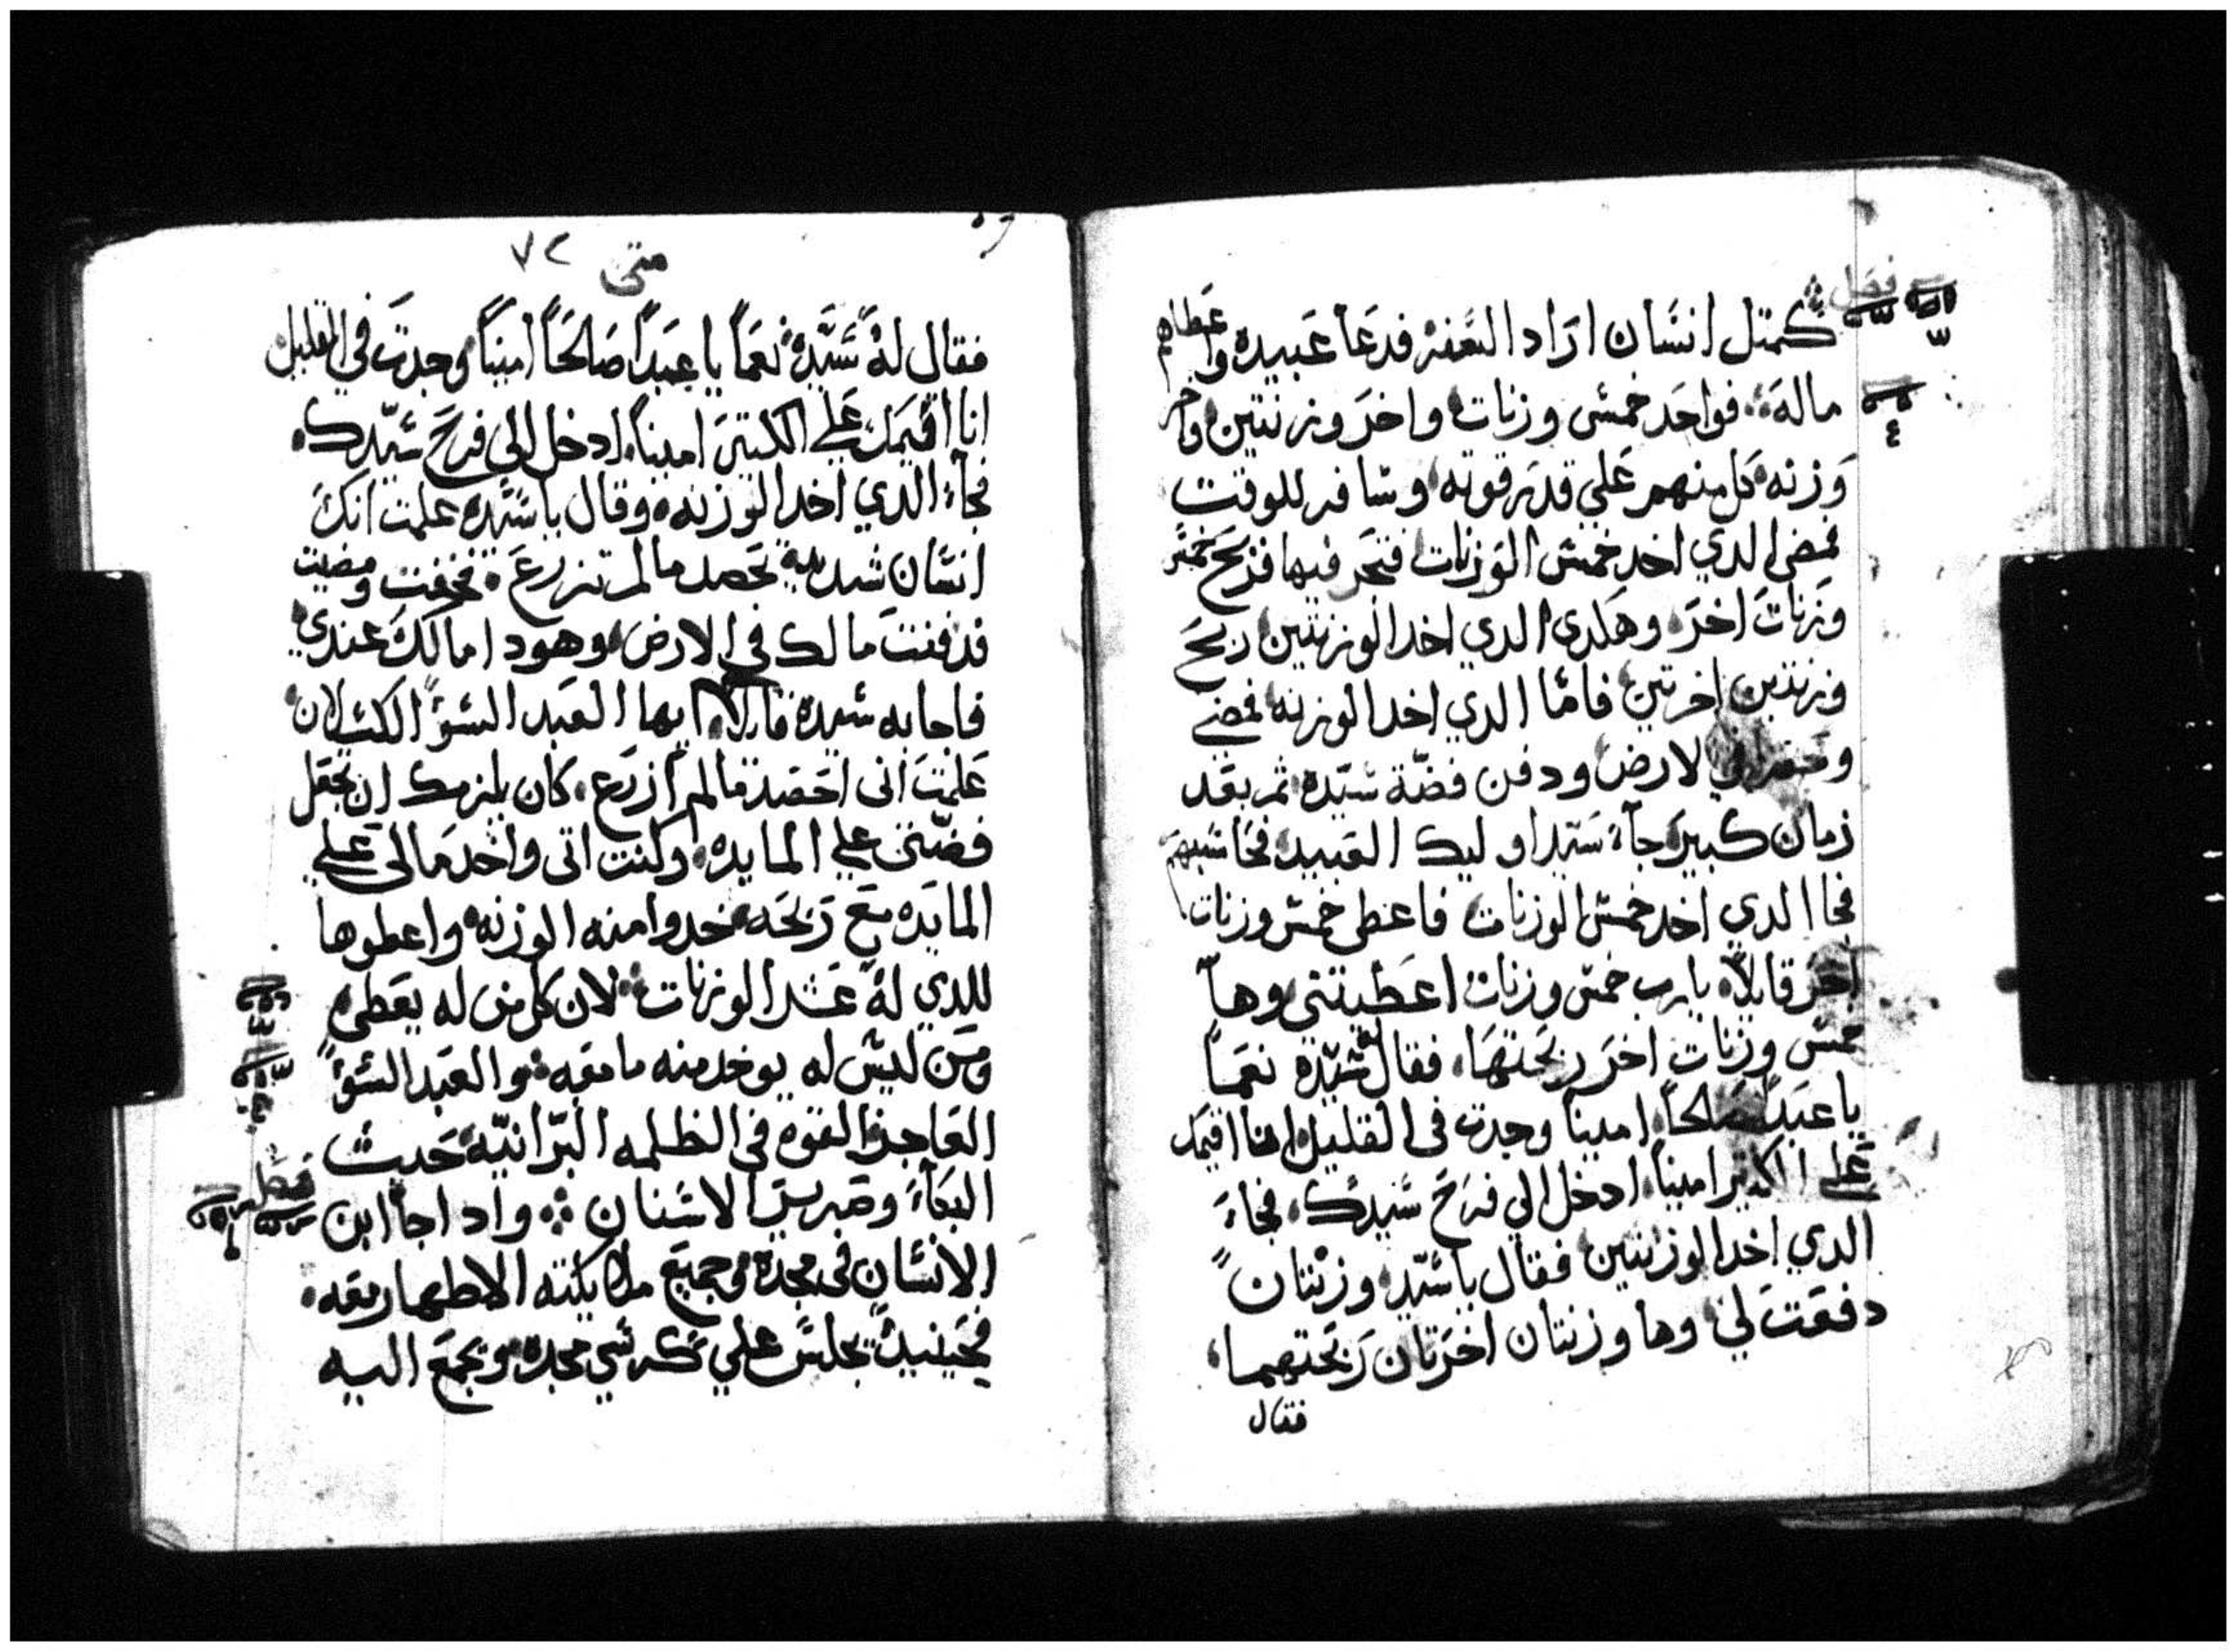 فصل
كمتل انسان اراد السفر فدعا عبيده واعطاهم
ماله فواحد خمس وزنات واخر وزنتين واخر
وزنه كل منهم علي قدر قوته وسافر للوقت
فمضى الدي اخد خمس الوزنات فتجر فيها فربح خمس
وزنات اخر وهكدي الدي اخد الوزنتين ربح
وزنتين اخرتين فاما الدي اخد الوزنه فمضى
وحفر في الارض ودفن فضة سيده ثم بعد
زمان كبير جآء سيد اوليك العبيد فحاسبهم
فجا الدي اخد خمس الوزنات فاعطى خمس وزنات
اخر قايلاً يارب خمس وزنات اعطيتني وهآ
خمس وزنات اخر ربحتها فقال له سيده نعماً
يا عبداً صالحاً اميناً وجدت في القليل انا اقيمك
علي الكتير اميناً ادخل الي فرح سيدك فجاء
الدي اخد الوزنتين فقال يا سيده وزنتان
دفعت لي وها وزنتان اخرتان ربحتهما
فقال
متى ٧٢
فقال له سيده نعماً يا عبداً صالحاً اميناً وجدت في القليل
انا اقيمك علي الكتير اميناً ادخل الي فرح سيدك
فجآء الدي اخد الوزنه وقال يا سيده علمت انك
انسان شديد تحصد ما لم تزرع فخفت ومضيت
فدفنت مالك في الارض وهودا مالك عندي
فاجابه سيده قايلاً ايها العبد السوّ الكسلان
علمت اني احصد ما لم ازرع كان يلزمك ان تجعل
فضتي علي المايده وكنت اتى واخد مالي علي
المايده مع ربحه خدوا منه الوزنه واعطوها
للدي له عشر الوزنات لان كل من له يعطى
ومن ليس له يوخد منه ما معه والعبد السوّ
العاجز القوه في الظلمه البرانيه حيث
البكآء وصرير الاسنان وادا جآ ابن
فصل
الانسان في مجده وجميع ملايكته الاطهار معه
فحينيد يجلس علي كرسي مجده ويجمع اليه